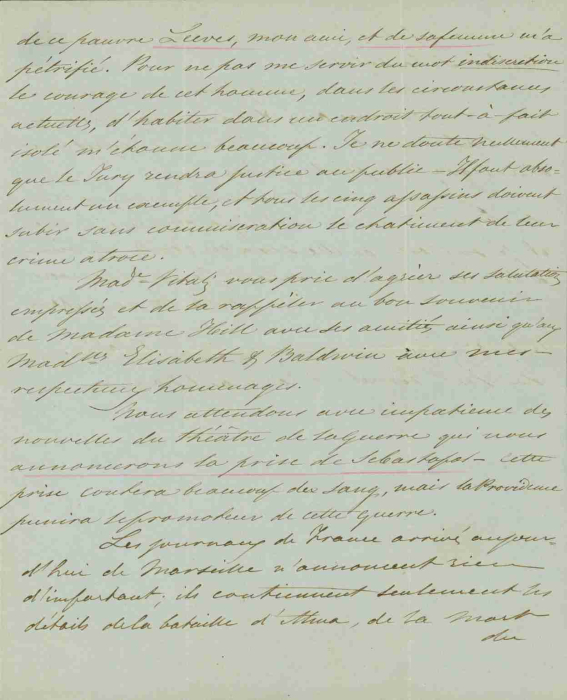 de ce pauvre Leeves, mon ami, et de sa femme m'a
pétrifié. Pour ne pas me servir du mot indiscretion
le courage de cet homme, dans les circonstances
actuelles, d'habiter dans un endroit tout-à-fait
isolé m'étonne beaucoup. Je ne doute nullement
que le Jury rendra justice au public – Il faut abso-
lument un exemple, et tous les cinq assassins doivent
subir sans commiseration le chatiment de leur
crime atroce.
Mad.e Vitali vous prie d'agréer ses salutations
empressés et de la rappéler au bon souvenir
de Madame Hill avec ses amitiés, ainsi qu'aux
Mad.lles Elisabeth & Baldwin avec mes
respectueux homenages.
Nous attendons avec impatience des
nouvelles du théâtre de la guerre qui nous
annoncerons la prise de Sebastopol – cette
prise coutera beaucoup de sang, mais la Providence
punira le promoteur de cette guerre.
Les journaux de France arrivés aujour-
d'hui de Marseille n'annoncent rien
d'important; ils contiennent seulement les
détails de la bataille d'Alma, de la mort
du